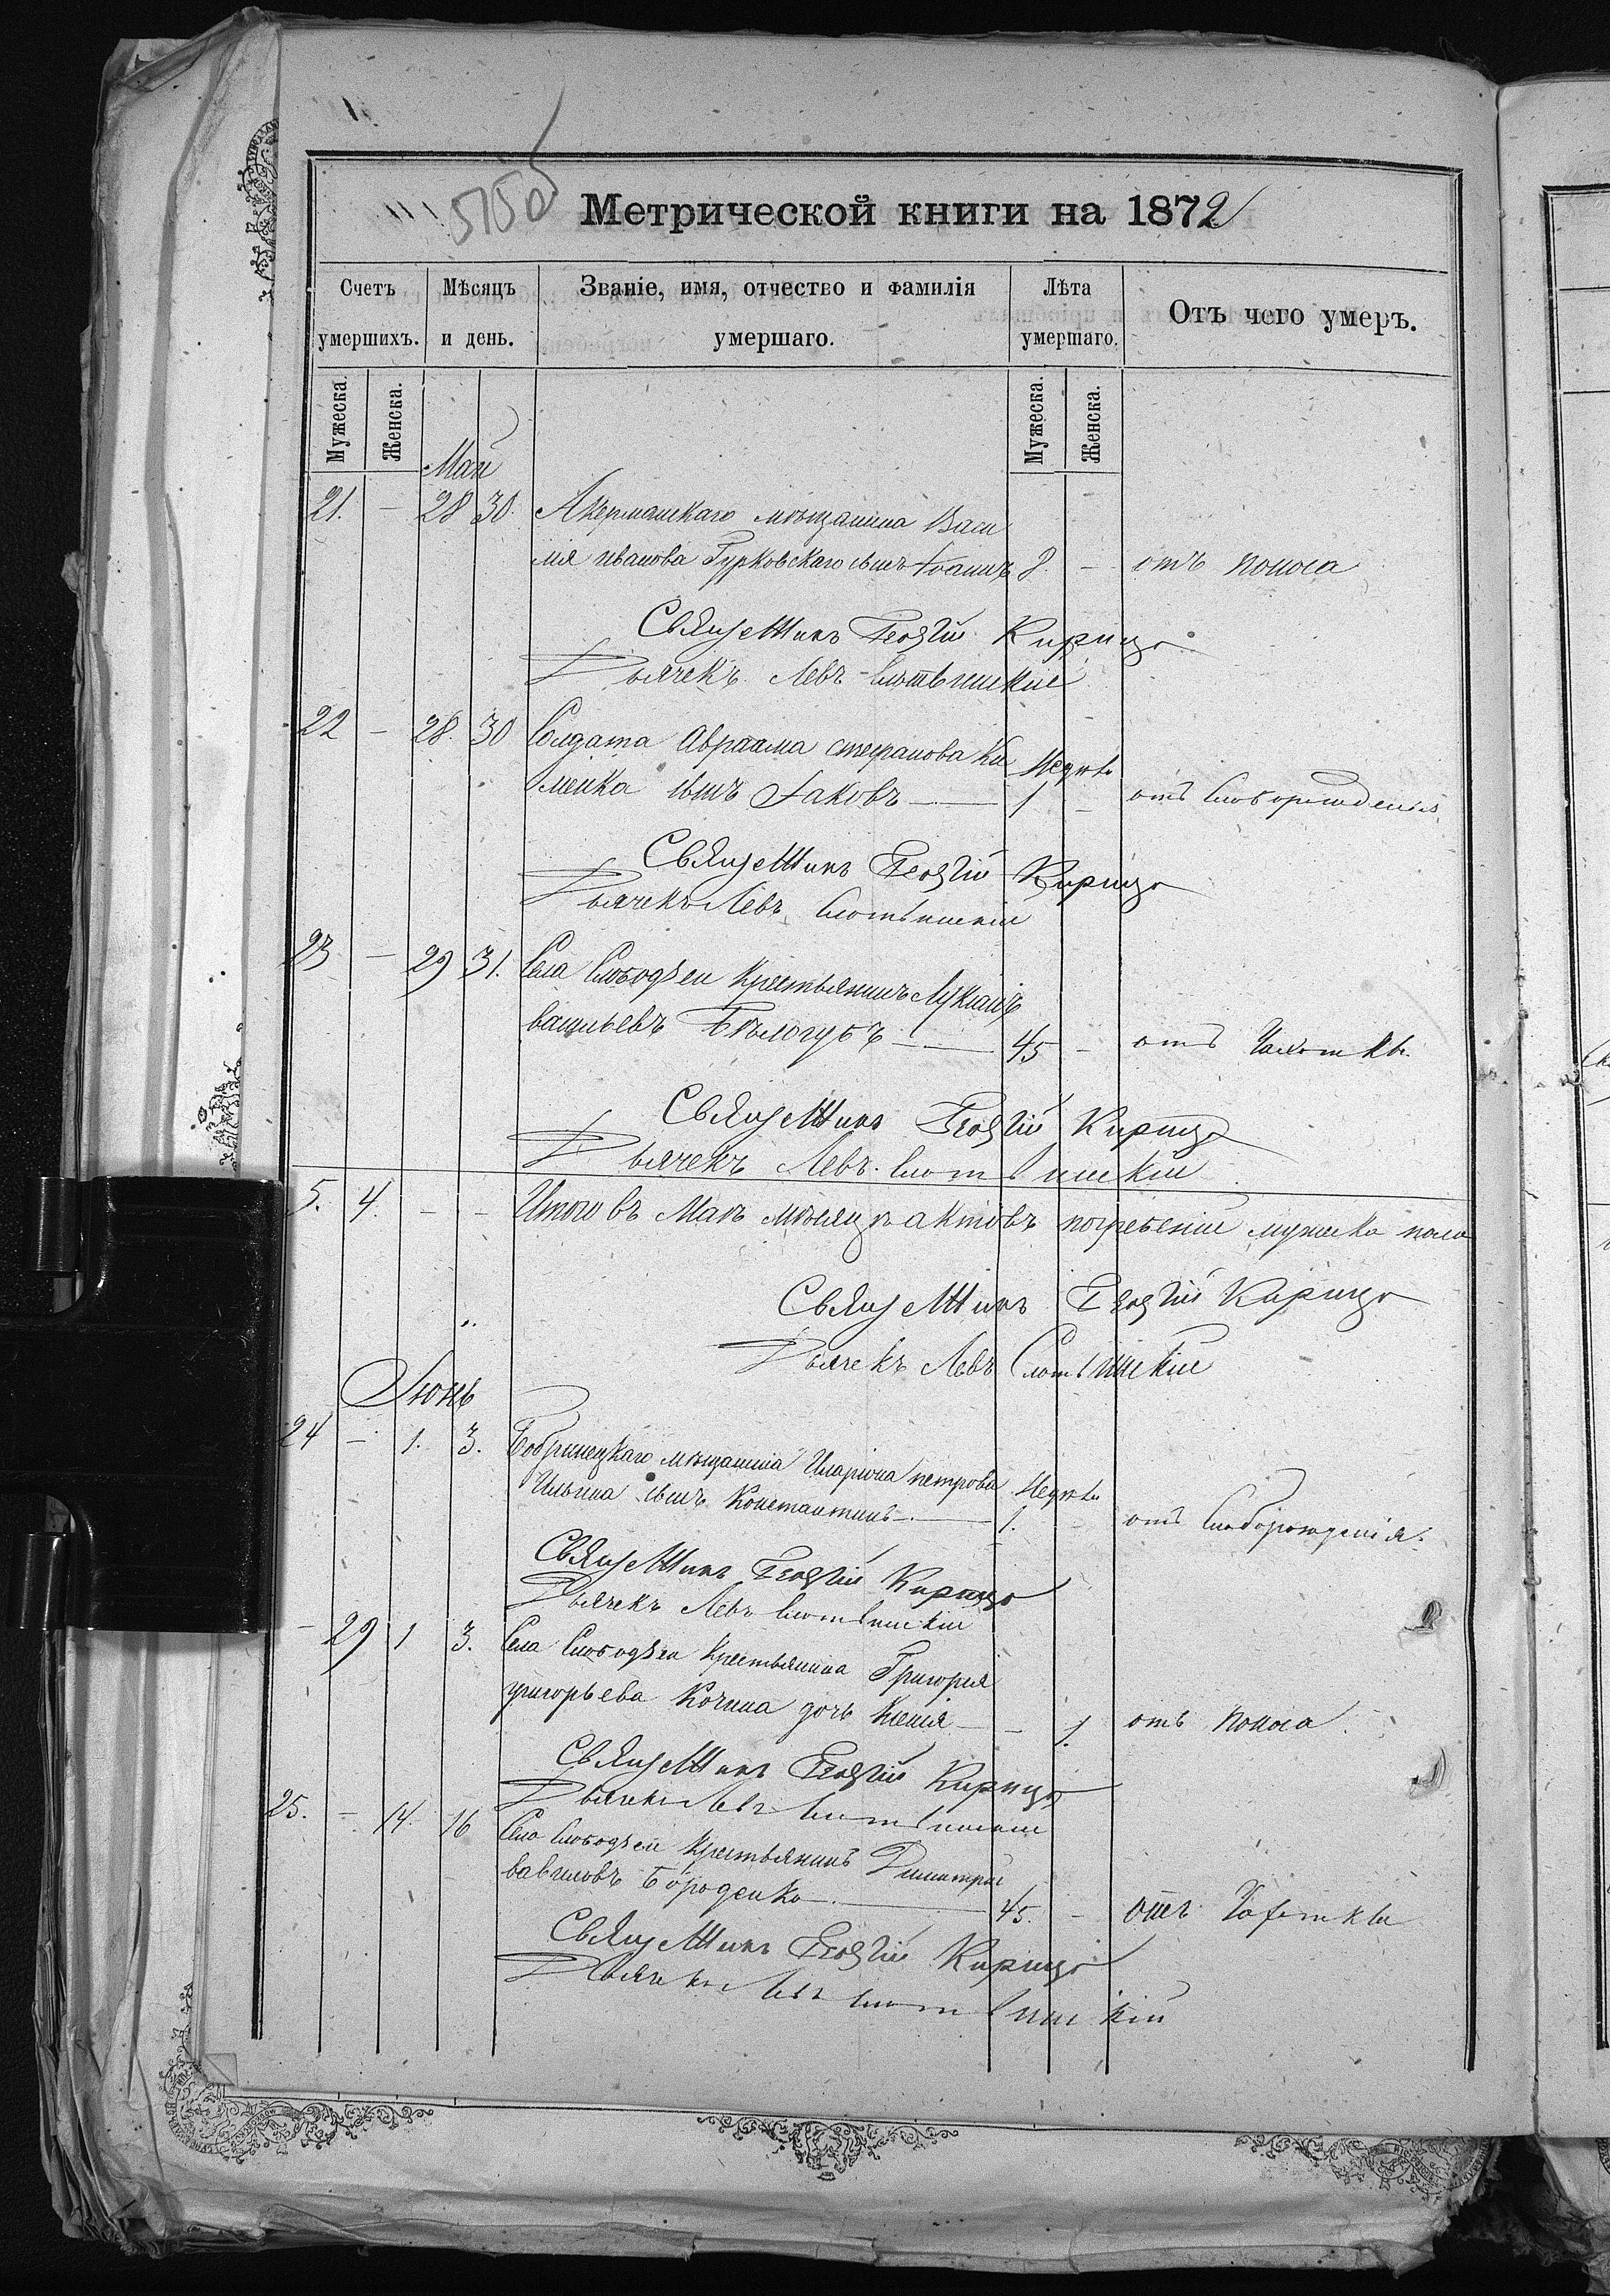 5750
Метрической книги на 1872
Счетъ умершихъ.
Мѣсяцъ и день.
Званіе, имя, отчество и фамилія умершаго.
Лѣта умершаго.
Отъ чего умеръ.
Мужеска.
Женска.
Мужеска.
Женска.
Май
21. - 28 30. Акерманскаго мѣщанина Васи
лія иванова Гурковскаго сынъ Іоаннъ 8. - отъ поноса
Священникъ Георгій Кирица
Дьячекъ Левъ
22 - 28. 30 Солдата Авраама стефанова Ки
менка сынъ Іаковъ — недѣль 1 - отъ слаборожденія
Священникъ Георгій Кирица
Дьячекъ Левъ
23 - 29 31. Села Слободзеи Крестьянинъ Лукіанъ
васильевъ Бѣлогубъ — 45 - отъ чахотки.
Священникъ Георгій Кирица
Дьячекъ Левъ
5. 4. - - Итого въ Маѣ мѣсяцѣ актовъ погребеній мужеска пола
Священникъ Георгій Кирица
Дьячекъ Левъ
Іюнь
24 - 1. 3. Бобринецкаго мѣщанина Иларіона петрова
Ильина сынъ Константинъ — недѣль 1. - отъ слаборожденія.
Священникъ Георгій Кирица
Дьячекъ Левъ
- 29 1 3. Села Слободзеи Крестьянина Григорія
григорьева Кочина дочь Ксенія — - 1. отъ поноса.
Священникъ Георгій Кирица
Дьячекъ Левъ
25. - 14. 16 Села Слободзеи Крестьянинъ Димитрій
вавиловъ Бороденко — 45. - отъ чахотки
Священникъ Георгій Кирица
Дьячекъ Левъ